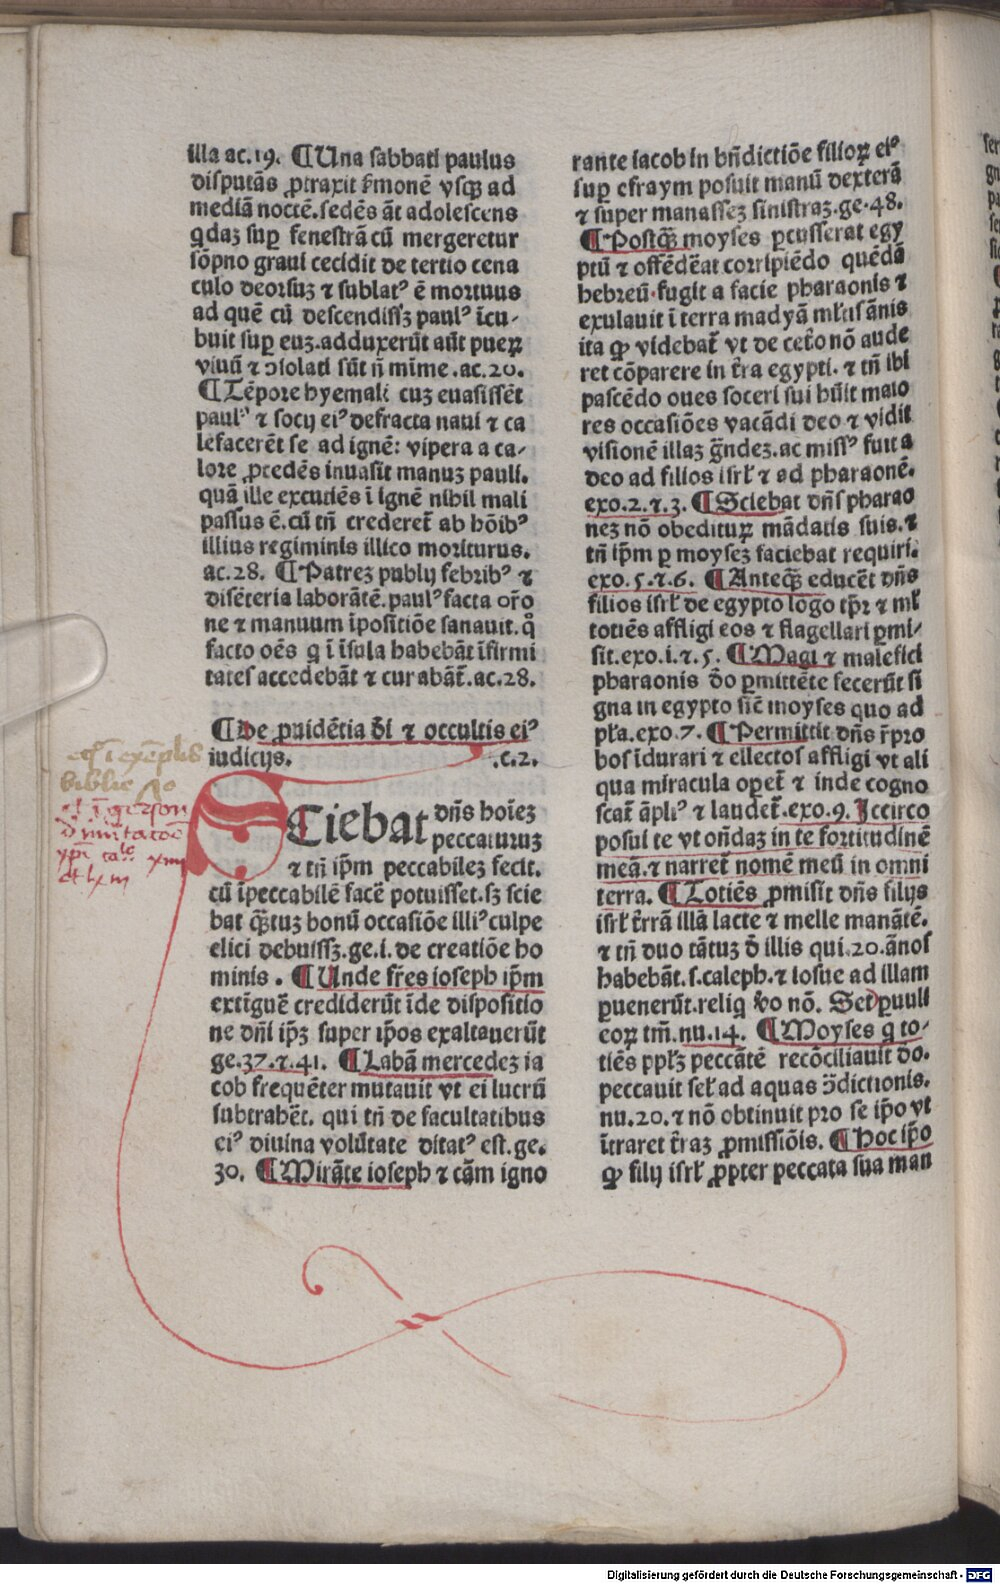 illa ac.19. ¶Una sabbati paulus
disputãs ꝓtraxit ẜmonẽ vsq̃ ad
mediã noctẽ.sedẽs ãt adolescens
qdaꝫ suꝑ fenestrã cũ mergeretur
sõpno graui cecidit de tertio cena
culo deorsuꝫ ⁊ sublatꝰ ẽ mortuus
ad quẽ cũ descendissꝫ paulꝰ ĩcu-
buit suꝑ euꝫ.adduxerũt aũt pueꝝ
viuũ ⁊ ↄsolati sũt ñ mĩme.ac.20.
¶Tẽpore hyemali cuꝫ euasissẽt
paulꝰ ⁊ socij eiꝰ defracta naui ⁊ ca
lefacerẽt se ad ignẽ: vipera a ca-
lore ꝓcedẽs inuasit manuꝫ pauli.
quã ille excutiẽs ĩ ignẽ nihil mali
passus ẽ.cũ tñ crederet̃ ab hõibꝰ
illius regiminis illico moriturus.
ac.28. ¶Patreꝫ publij febribꝰ ⁊
disẽteria laborãtẽ.paulꝰ facta or̃o
ne ⁊ manuum ĩpositiõe sanauit.q̊
facto oẽs q ĩ ĩsula habebãt ĩfirmi
tates accedebãt ⁊ curabãt̃.ac.28.
¶De ꝓuidẽtia dĩ ⁊ occultis eiꝰ
iudicijs. .c.2.
q̃ ĩ exẽplis
biblie
et ĩ gerson
xpĩ
et lxiii
SCiebat dñs hoĩeꝫ
peccaturuꝫ
⁊ tñ ip̃m peccabileꝫ fecit.
cũ ĩpeccabilẽ facẽ potuisset.sꝫ scie
bat q̃tuꝫ bonũ occasiõe illiꝰ culpe
elici debuissꝫ.ge.i.de creatiõe ho
minis. ¶Unde fr̃es ioseph ip̃m
extĩguẽ crediderũt ĩde dispositio
ne dñi ip̃ꝫ super ip̃os exaltauerũt
ge.37.⁊.41. ¶Labã mercedeꝫ ia
cob frequẽter mutauit vt ei lucrũ
subtrahẽt. qui tñ de facultatibus
eiꝰ diuina volũtate ditatꝰ est.ge.
30. ¶Mirãte ioseph ⁊ cãm igno
rante iacob in bñdictiõe filioꝝ eiꝰ
suꝑ efraym posuit manũ dexterã
⁊ super manasseꝫ sinistraꝫ.ge.48.
¶Postq̃ꝫ moyses ꝑcusserat egy
ptũ ⁊ offẽdẽat corripiẽdo quẽdã
hebreũ.fugit a facie pharaonis ⁊
exulauit ĩ terra madyã ml̃tis ãnis
ita ꝙ videbat̃ vt de cet̃o nõ aude
ret cõparere in t̃ra egypti. ⁊ tñ ibi
pascẽdo oues soceri sui hũit maio
res occasiões vacãdi deo ⁊ vidit
visionẽ illaꝫ g̃ndeꝫ.ac missꝰ fuit a
deo ad filios isrł ⁊ ad pharaonẽ.
exo.2.⁊.3. ¶Sciebat dñs pharao
neꝫ nõ obedituꝝ mãdatis suis.⁊
tñ ip̃m ꝑ moyseꝫ faciebat requiri.
exo.5.⁊.6. ¶Anteq̃ꝫ educẽt dñs
filios isrł de egypto lõgo tp̃r ⁊ ml̃
totiẽs affligi eos ⁊ flagellari ꝑmi-
sit.exo.i.⁊.5. ¶Magi ⁊ malefici
pharaonis do ꝑmittẽte fecerũt si
gna in egypto sic̃ moyses quo ad
pl̃a.exo.7. ¶Permittit dñs r̃pro
bos ĩdurari ⁊ ellectos affligi vt ali
qua miracula oꝑet̃ ⁊ inde cogno
scat̃ ãpliꝰ ⁊ laudet̃.exo.9. Iccirco
posui te vt oñdaꝫ in te fortitudinẽ
meã.⁊ narret̃ nomẽ meũ in omni
terra. ¶Totiẽs ꝓmisit dñs filijs
isrł t̃rã illã lacte ⁊ melle manãtẽ.
⁊ tñ duo tãtuꝫ d̃ illis qui.20.ãnos
habebãt.s.caleph.⁊ iosue ad illam
ꝑuenerũt.reliq ṽo nõ. Sed ꝑuuli
eoꝝ tm̃.nu.14. ¶Moyses q to-
tiẽs ppl̃ꝫ peccãtẽ recõciliauit do.
peccauit seł ad aquas ↄ̃dictionis.
nu.20.⁊ nõ obtinuit pro se ip̃o vt
ĩtraret t̃raꝫ ꝓmissiõis. ¶Hoc ip̃o
ꝙ filij isrł ꝓpter peccata sua man
Digitalisierung gefördert durch die Deutsche Forschungsgemeinschaft - DFG